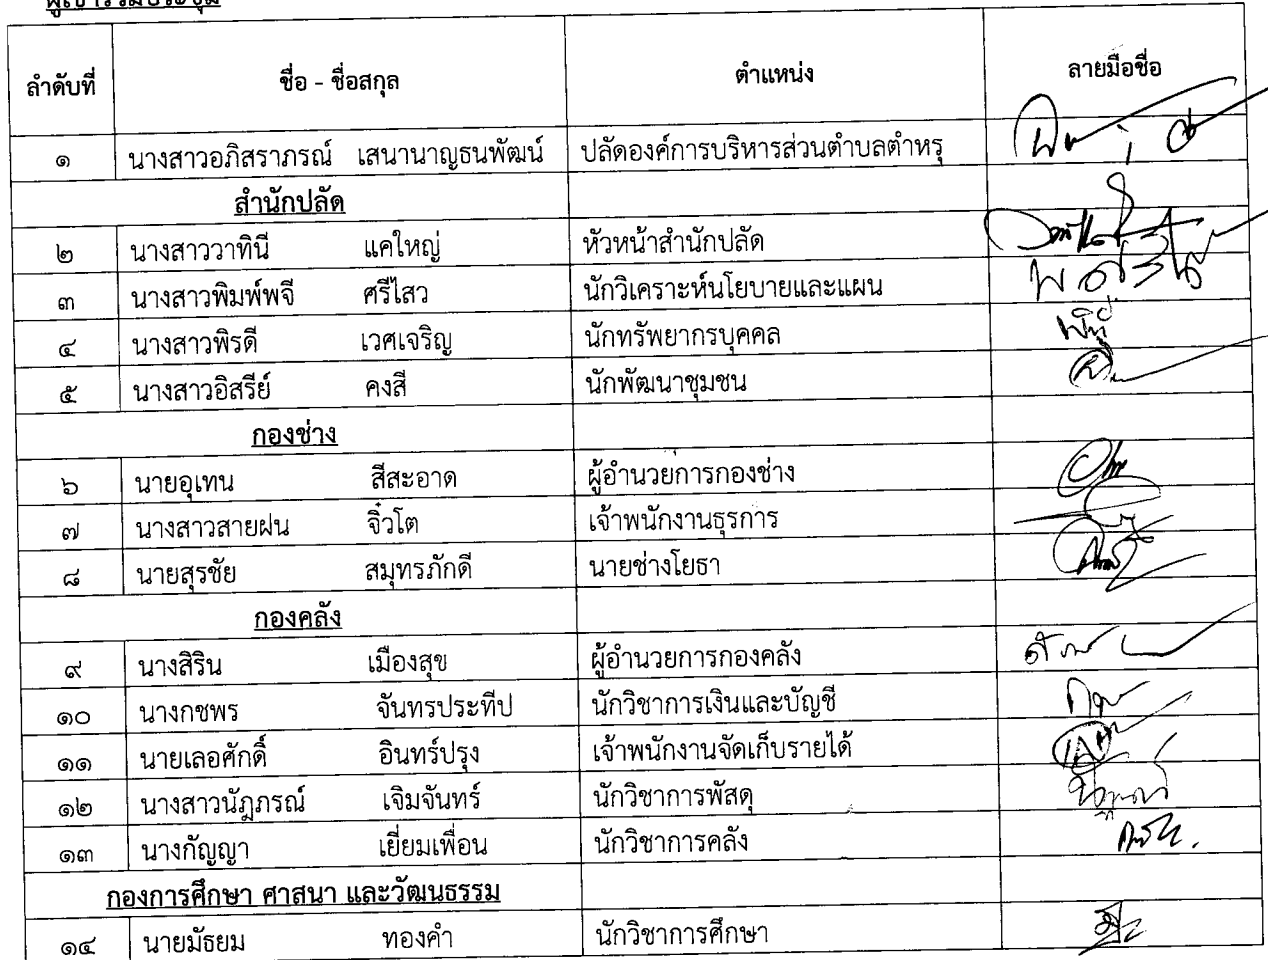 ผู้เข้าร่วมประชุม
ลำดับที่ ชื่อ - ชื่อสกุล ตำแหน่ง ลายมือชื่อ
๑ นางสาวอภิสราภรณ์ เสนานาญธนพัฒน์ ปลัดองค์การบริหารส่วนตำบลตำหรุ
สำนักปลัด
๒ นางสาววาทินี แคใหญ่ หัวหน้าสำนักปลัด
๓ นางสาวพิมพ์พจี ศรีไสว นักวิเคราะห์นโยบายและแผน
๔ นางสาวพิรดี เวศเจริญ นักทรัพยากรบุคคล
๕ นางสาวอิสรีย์ คงสี นักพัฒนาชุมชน
กองช่าง
๖ นายอุเทน สีสะอาด ผู้อำนวยการกองช่าง
๗ นางสาวสายฝน จิ๋วโต เจ้าพนักงานธุรการ
๘ นายสุรชัย สมุทรภักดี นายช่างโยธา
กองคลัง
๙ นางสิริน เมืองสุข ผู้อำนวยการกองคลัง
๑๐ นางกชพร จันทรประทีป นักวิชาการเงินและบัญชี
๑๑ นายเลอศักดิ์ อินทร์ปรุง เจ้าพนักงานจัดเก็บรายได้
๑๒ นางสาวนัฎภรณ์ เจิมจันทร์ นักวิชาการพัสดุ
๑๓ นางกัญญา เยี่ยมเพื่อน นักวิชาการคลัง
กองการศึกษา ศาสนา และวัฒนธรรม
๑๔ นายมัธยม ทองคำ นักวิชาการศึกษา